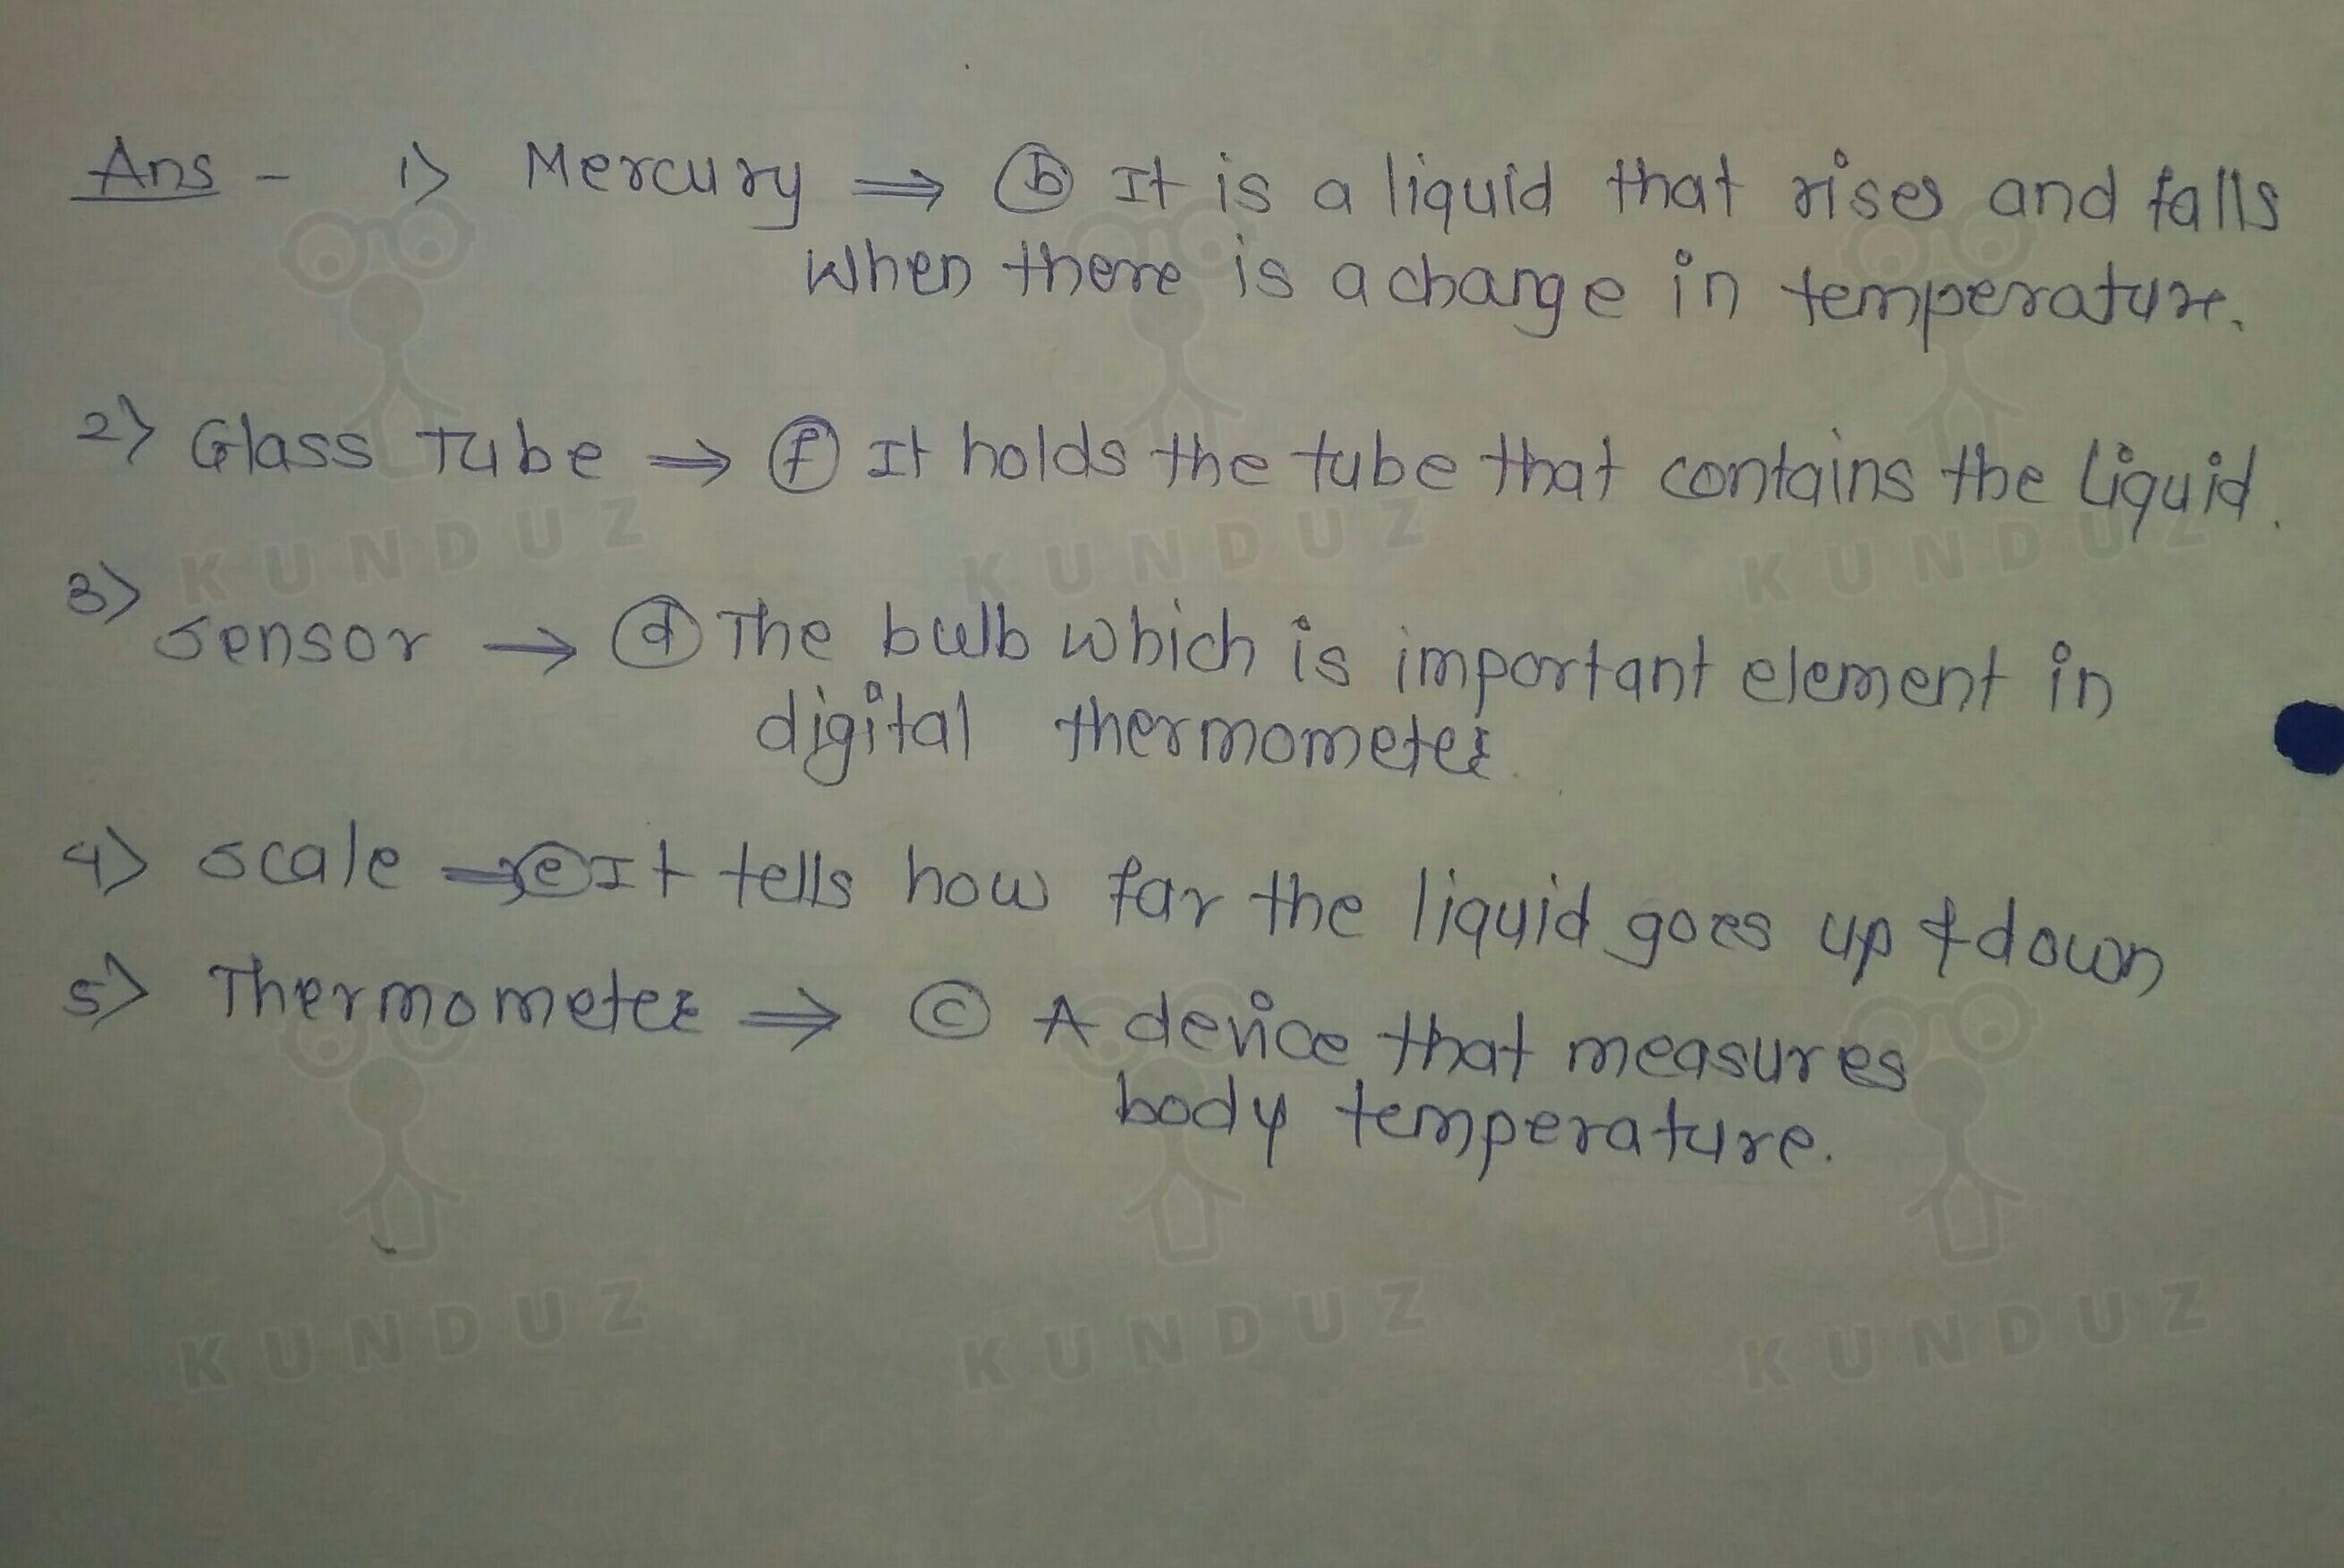 Ans - 1) Mercury ⇒ ⓑ It is a liquid that rises and falls
when there is a change in temperature.
2) Glass Tube ⇒ ⓕ It holds the tube that contains the liquid.
3) Sensor → ⓓ The bulb which is important element in
digital thermometer.
4) Scale ⇒ ⓔ It tells how far the liquid goes up & down
5) Thermometer ⇒ ⓒ A device that measures
body temperature.
KUNDUZ KUNDUZ KUNDUZ
KUNDUZ KUNDUZ KUNDUZ